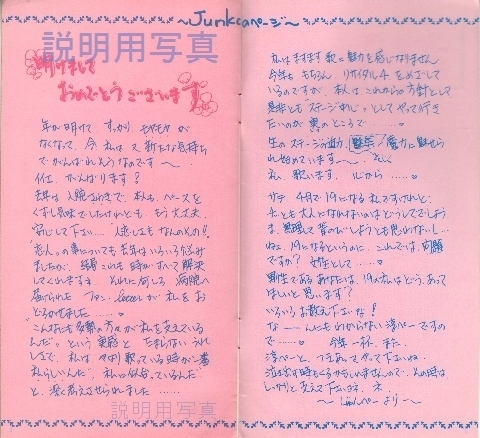 ～Junkoのページ～
説明用写真
明けまして
おめでとうございます
年が明けて すっかり モヤモヤが
なくなって、今 私は 又 新たな気持ち
でがんばれそうなのです～
仕事、がんばります!
去年は 入院さわぎで、本人も、ペースを
くずし気味でしたけれども もう大丈夫。
安心して下さい… 人恋しても なんのその!!
の事についても 去年は いろいろ悩み
ましたが、結局 これも 時がすべて 解決
してくれますネ それに何しろ 病院へ
届けられた ファン、letterが 私を お
どろかせました……。
"こんなにも 多勢の方々が 私を支えている
んだ"という 実感と たまらない うれ
しさで、私は やはり歌っている時が 一番
私らしいんだ"、私に似合っているんだ"
と、深く考えさせられました ……
説明用写真
私は ますます 歌に魅力を感じなりません
今年も もちろん、リサイタル4 をめざして
いるのですが、本人は これからの方針として
是非とも"ステージ"として やって行き
たいのが 裏のところで……。
生のステージの迫力、魔力に魅せら
れ始めています～。えへへ
私、歌います、心から……。
サテ 4月で 19になる 私ですけれど、
ちっとも 大人になれないのは どうしてでしょう
ネェ、19になるというのに、これでは、問題
ですか? 女性として……。
男性である あなたは、19の人は どう、あって
ほしいと思います?
いろいろ お教え下さいな!
な～んにも わからない 淳ペーですの
で……。今年一杯、また、
淳ペーと、つきあってやって下さいね。
泣き出す時もくるかもしれませんので、その時は
しっかりと 支えて下さいネ、ネ
～じゅんペーより～